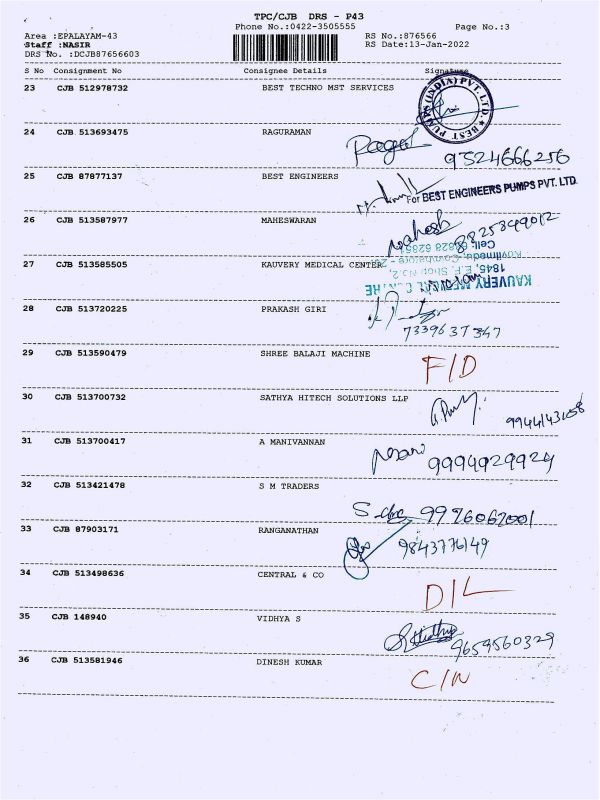 TPC/CJB DRS - P43
Phone No.:0422-3505555 Page No.:3
Area :EPALAYAM-43 RS No.:876566
Staff :NASIR RS Date:13-Jan-2022
DRS No. :DCJB87656603
S No Consignment No Consignee Details Signature
23 CJB 512978732 BEST TECHNO MST SERVICES
BEST PUMPS (INDIA) PVT. LTD.
24 CJB 513693475 RAGURAMAN
Ragul 9524666256
25 CJB 87877137 BEST ENGINEERS
For BEST ENGINEERS PUMPS PVT. LTD.
26 CJB 513587977 MAHESWARAN
Mahesh 8825849012
27 CJB 513585505 KAUVERY MEDICAL CENTER
KAUVERY MEDICAL CENTRE
1845, E.F. Shop No.2,
Kovilmedu, Coimbatore - 25
28 CJB 513720225 PRAKASH GIRI
7339637347
29 CJB 513590479 SHREE BALAJI MACHINE
F/D
30 CJB 513700732 SATHYA HITECH SOLUTIONS LLP
31 CJB 513700417 A MANIVANNAN
9994929924
32 CJB 513421478 S M TRADERS
33 CJB 87903171 RANGANATHAN
9843776149
34 CJB 513498636 CENTRAL & CO
D/L
35 CJB 148940 VIDHYA S
9659560329
36 CJB 513581946 DINESH KUMAR
C/N